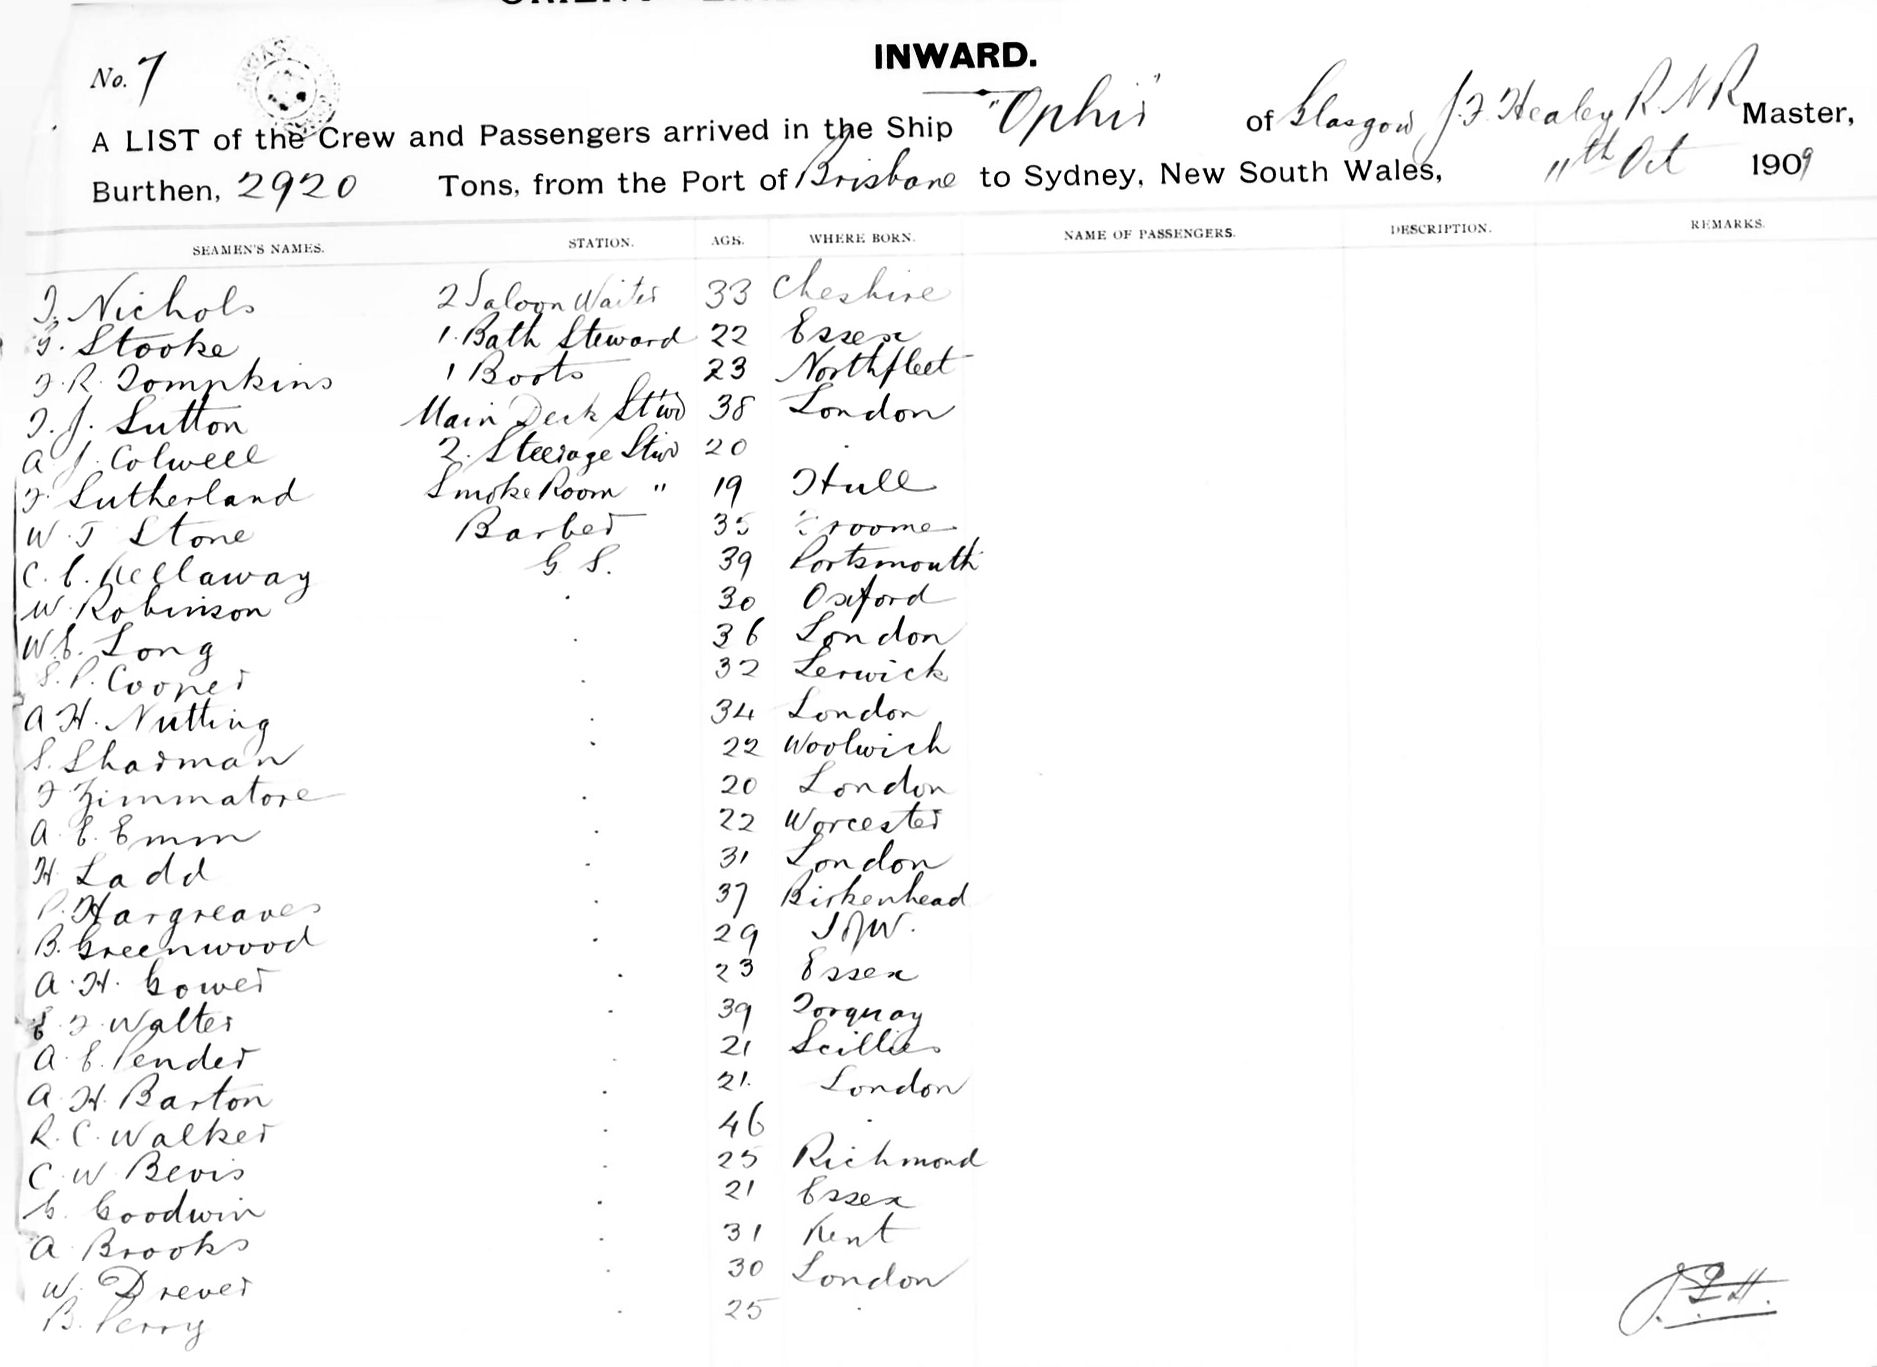 No. 7
INWARD.
A LIST of the Crew and Passengers arrived in the Ship "Ophir" of Glasgow J. F. Healey R N R Master,
Burthen, 2920 Tons, from the Port of Brisbane to Sydney, New South Wales, 11th Oct 1909
SEAMEN'S NAMES. STATION. AGE. WHERE BORN. NAME OF PASSENGERS. DESCRIPTION. REMARKS.
Nichols 2 Saloon Waiter 33 Cheshire
Stooke 1. Bath Steward 22 Essex
F. R. Tompkins 1 Boots 23 Northfleet
F. J. Sutton Main Deck Stwd 38 London
A J. Colwell 2. Steerage Stwd 20 .
F Sutherland Smoke Room " 19 Hull
W. T Stone Barber 35
C. E. Kellaway G. S. 39 Portsmouth
W. Robinson . 30 Oxford
W. E. Long . 36 London
S. P. Cooper . 32 Lerwick
A H. Nutting . 34 London
S. Sharman . 22 Woolwich
F Zimmatore . 20 London
A. E. Emm . 22 Worcester
H. Ladd . 31 London
P. Hargreaves . 37 Birkenhead
B. Greenwood . 29 I of W.
A. H. Gower . 23 Essex
E. F Walter . 39 Torquay
A. E. Pender . 21 Scillies
A. H. Barton . 21. London
R. C. Walker . 46 .
C. W Bevis . 25 Richmond
G. Goodwin . 21 Essex
A Brooks . 31 Kent
W. Drever . 30 London
B. Perry . 25 .
J. F. H.